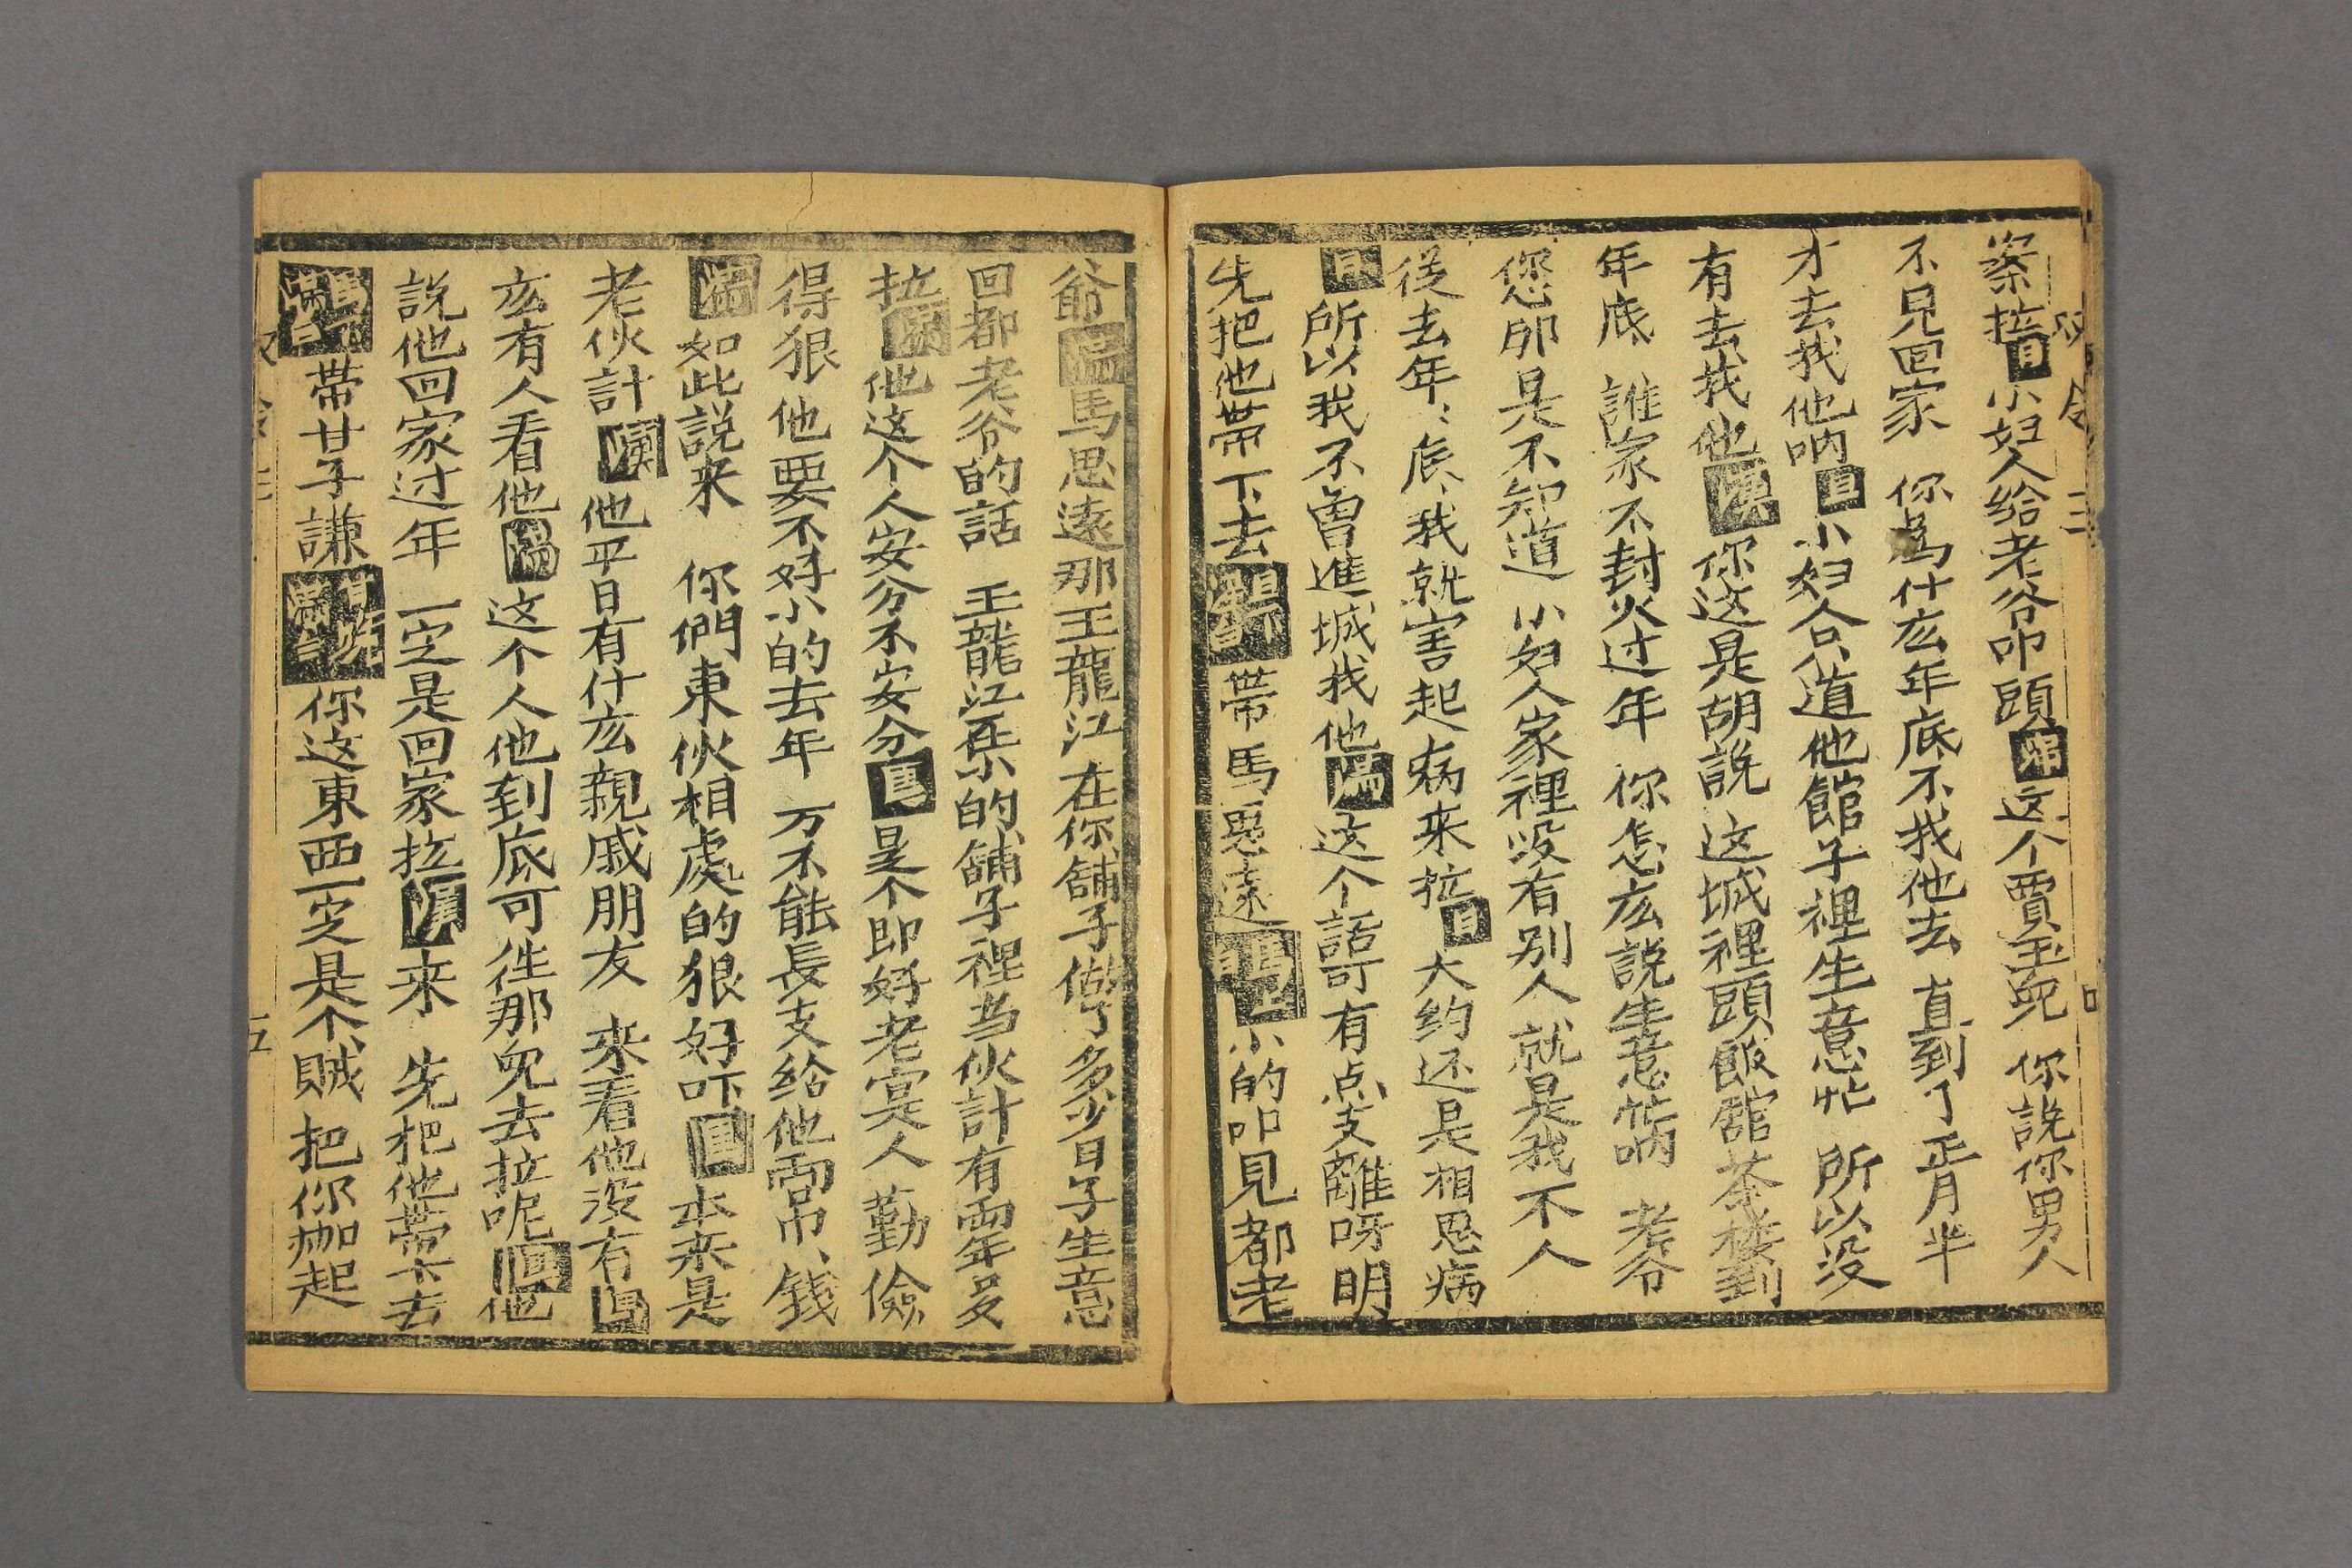 案拉小妇人给老爷叩頭这个賈玉死 你説你男人
不見回家 你為什庅年底不找他去 直到了正月半
才去找他呐小妇人只道他館子裡生意忙 所以没
有去找他滿你这是胡説 这城裡頭飯舘茶楼到
年底 誰家不封火过年 你怎庅説生意忙呐 老爷
您卯是不知道 小妇人家裡没有别人就是我不人
從去年〻底我就害起病来拉大约还是相思病
所以我不曾進城找他滿这个話可有点支離呀明
先把他帶下去 帶馬思遠 小的叩見都老
爺滿馬思遠那王龍江在你舖子做了多少日子生意
回都老爷的話 王龍江在小的舖子裡当伙計有両年多
拉滿他这个人安分不安分是个即好老寔人 勤儉
得狠 他要不好小的去年 万不能長支给他両吊〻钱
滿如此説来 你們東伙相處的狠好吓本来是
老伙計滿他平日有什庅親戚朋友 来看他没有
庅有人看他滿这个人他到底可徃那児去拉呢他
説他回家过年 一定是回家拉滿来 先把他帶下去
帶甘子謙 你这東西一定是个贼 把你枷起